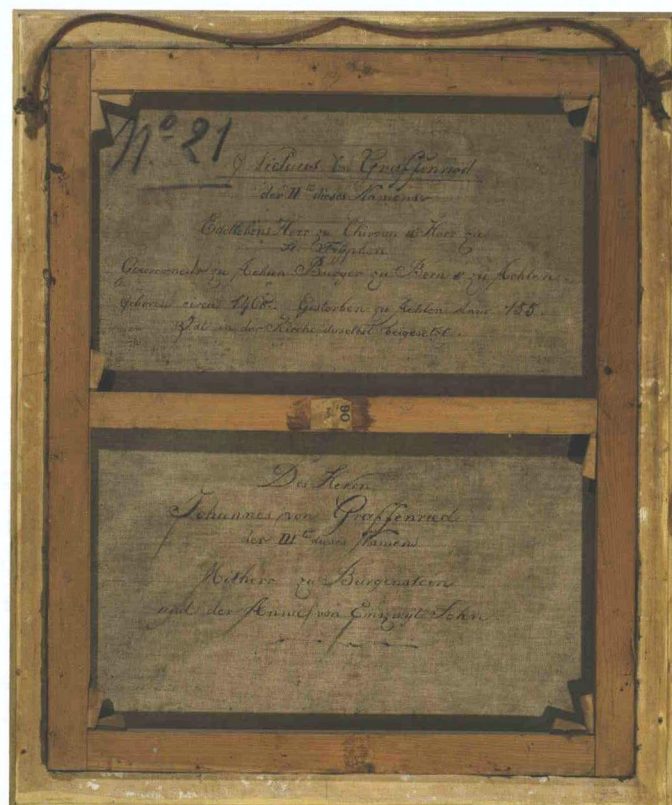 No 21
von Graffenried
der IIte dieses Namens
Herr zu Chivron & Herr zu
St. Tryphon
Gouverneur zu Aehlen Burger zu Bern & zu Aehlen
geboren circa 1468. Gestorben zu Aehlen Anno 155
Ist in der Kirche daselbst beigesetzt.
90
Des Herrn
Johannes von Graffenried
der IIIte dieses Namens
Mitherr zu Burgenstein
und der Anna von Sohn